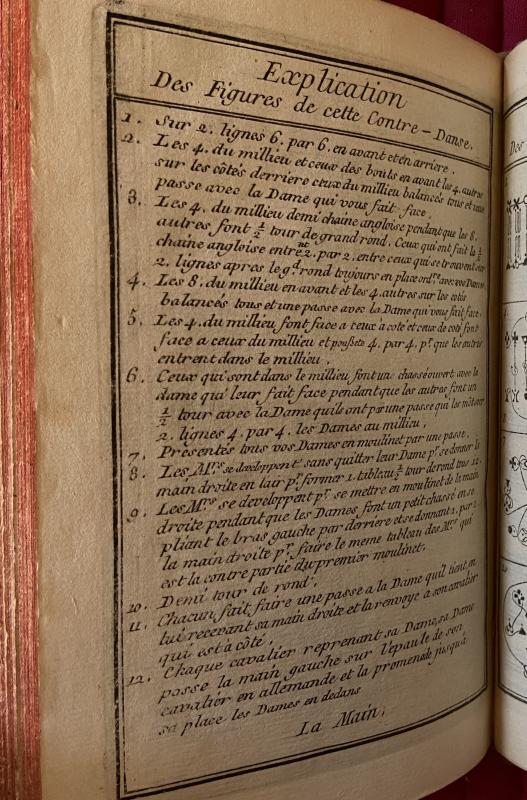 Explication
Des Figures de cette Contre-Danse.
1. Sur 2. lignes 6. par 6. en avant et en arriere.
2. Les 4. du millieu et ceux des bouts en avant les 4. autres
sur les côtés derriere ceux du millieu balancés tous et une
passe avec la Dame qui vous fait face.
3. Les 4. du millieu demi chaine angloise pendant que les 8.
autres font ½ tour de grand rond. Ceux qui ont fait la ½
chaine angloise entrent 2. par 2. entre ceux qui se trouvent sur
2. lignes apres le gd rond toujours en place ordre avec vos Dames.
4. Les 8. du millieu en avant et les 4. autres sur les cotés
balancés tous et une passe avec la Dame qui vous fait face.
5. Les 4. du millieu font face a ceux à coté et ceux de coté font
face a ceux du millieu et poussete 4. par 4. pr. que les autres
entrent dans le millieu.
6. Ceux qui sont dans le millieu font un chassé ouvert avec la
dame qui leur fait face pendant que les autres font un
½ tour avec la Dame quils ont par une passe qui les met sur
2. lignes 4. par 4. les Dames au millieu.
7. Présentés tous vos Dames en moulinet par une passe.
8. Les Mrs. se developpent sans quitter leur Dame pr. se donner la
main droite en lair pr. former 1. tableau ½ tour de rond tous 12.
9. Les Mrs. se developpent pr. se mettre en moulinet de la main
droite pendant que les Dames, font un petit chassé en se
pliant le bras gauche par derriere et se donnant 1. par 1.
la main droite pr. faire le meme tableau des Mrs. qui
est la contre partie du premier moulinet.
10. Demi tour de rond.
11. Chacun fait faire une passe a la Dame quil tient, en
lui recevant sa main droite et la renvoye a son cavalier
qui est à côté.
12. Chaque cavalier reprenant sa Dame, sa Dame
passe la main gauche sur l'epaule de son
cavalier en allemande et la promenade jusqu'à
sa place les Dames en dedans
La Main.
Des